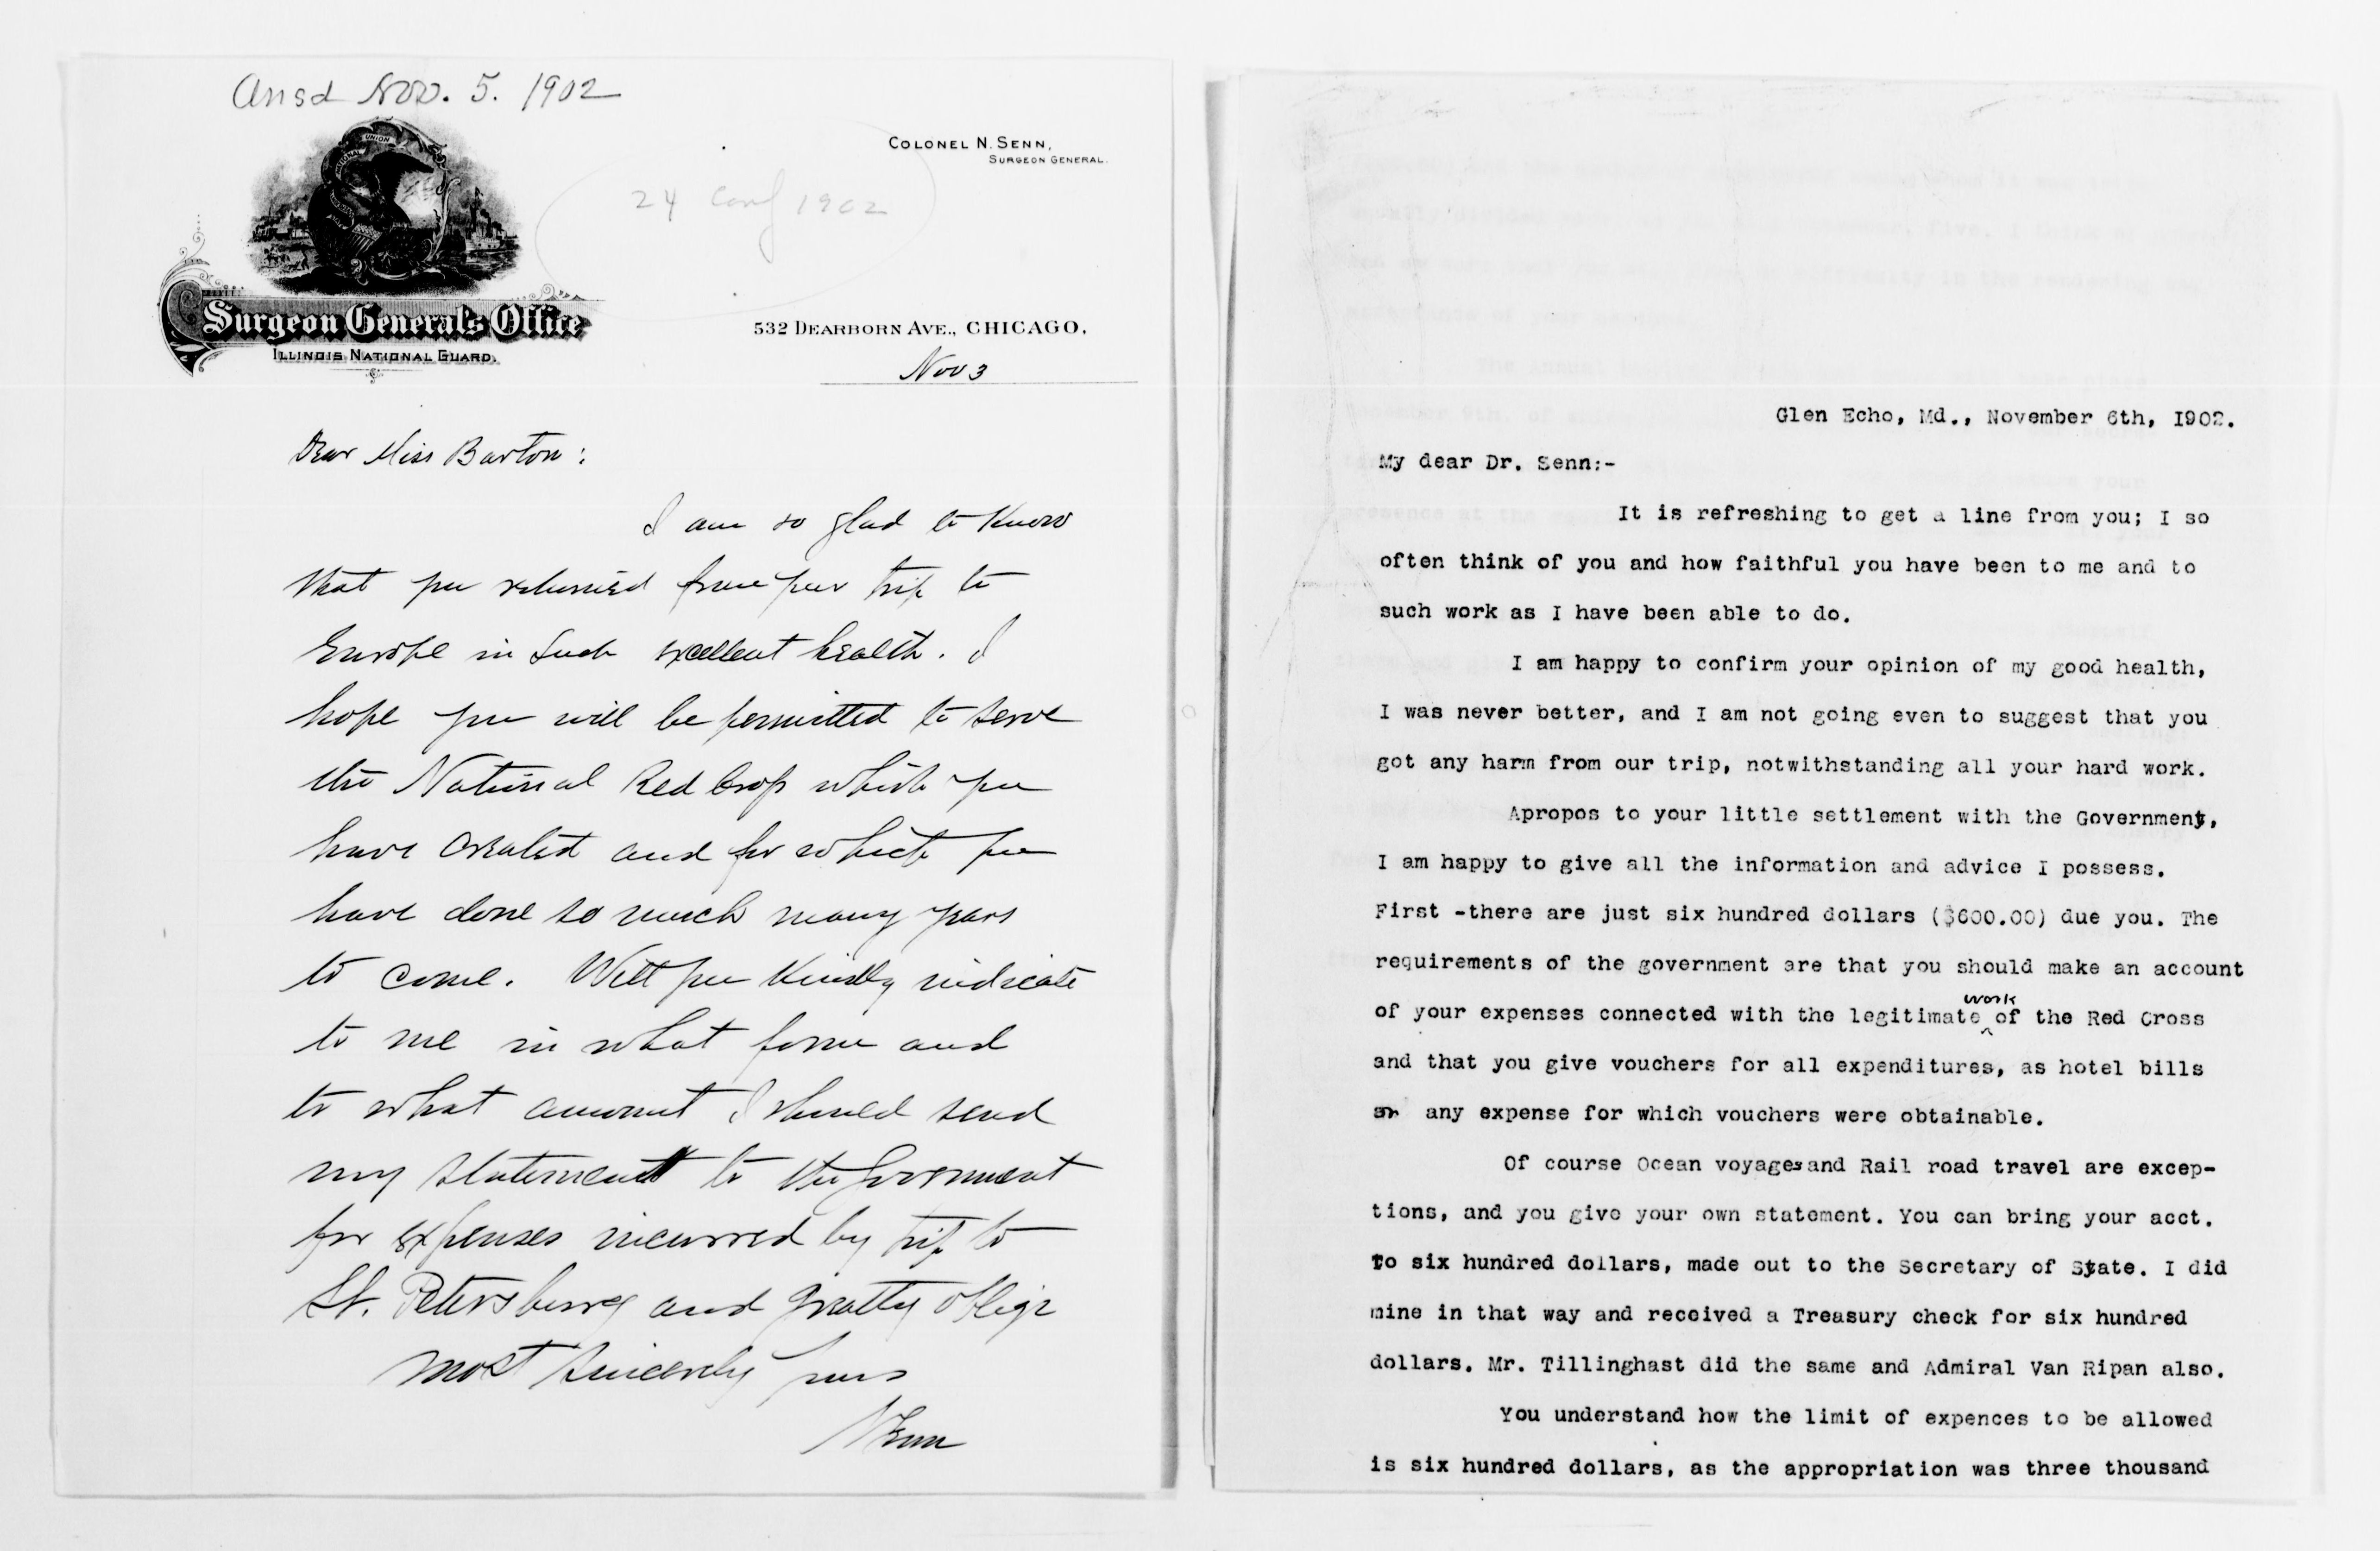 Ansd Nov. 5. 1902
UNION
NATIONAL
COLONEL N. SENN,
SURGEON GENERAL.
24 Conf 1902
Surgeon General's Office
ILLINOIS NATIONAL GUARD.
532 DEARBORN AVE., CHICAGO,
Nov 3
Dear Miss Barton:
I am so glad to know
that you returned from your trip to
Europe in such excellent health. I
hope you will be permitted to serve
the National Red Cross which you
have created and for which you
have done so much many years
to come. Will you kindly indicate
to me in what form and
to what amount I should send
my statement to the Government
for expenses incurred by trip to
St. Petersburg and greatly oblige
most sincerely yours
N Senn
Glen Echo, Md., November 6th, 1902.
My dear Dr. Senn:-
It is refreshing to get a line from you; I so
often think of you and how faithful you have been to me and to
such work as I have been able to do.
I am happy to confirm your opinion of my good health,
I was never better, and I am not going even to suggest that you
got any harm from our trip, notwithstanding all your hard work.
Apropos to your little settlement with the Government,
I am happy to give all the information and advice I possess.
First -there are just six hundred dollars ($600.00) due you. The
requirements of the government are that you should make an account
of your expenses connected with the legitimate work of the Red Cross
and that you give vouchers for all expenditures, as hotel bills
or any expense for which vouchers were obtainable.
Of course Ocean voyages and Rail road travel are excep-
tions, and you give your own statement. You can bring your acct.
to six hundred dollars, made out to the Secretary of State. I did
mine in that way and received a Treasury check for six hundred
dollars. Mr. Tillinghast did the same and Admiral Van Ripan also.
You understand how the limit of expences to be allowed
is six hundred dollars, as the appropriation was three thousand